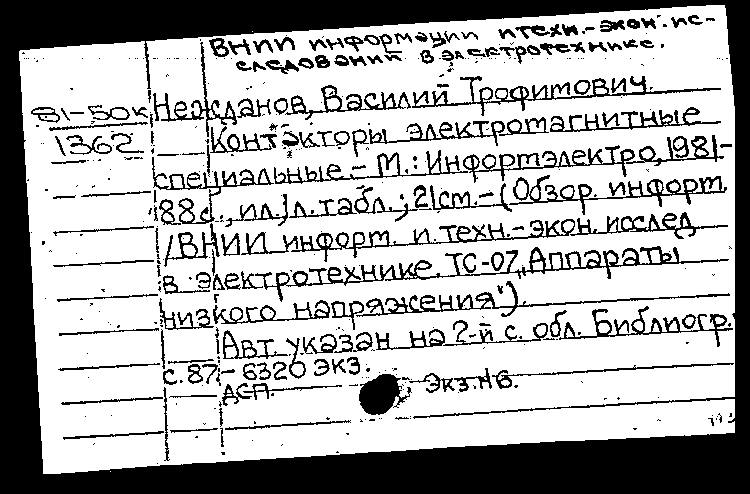 ВНИИ информации и техн.-экон. ис-
следований в электротехнике.
81-50к Нежданов, Василий Трофимович.
1362 Контэкторы электромагнитные
специальные.- М.: Информэлектро, 1981-
88с., ил., 1 л. табл.; 21см.- (Обзор. информ.
/ВНИИ информ. и техн.-экон. исслед
в электротехнике. ТС-07 „Аппараты
низкого напряжения").
Авт. указан на 2-й с. обл. Библиогр.:
с. 87.- 6320 экз.
ДСП. Экз.№6.